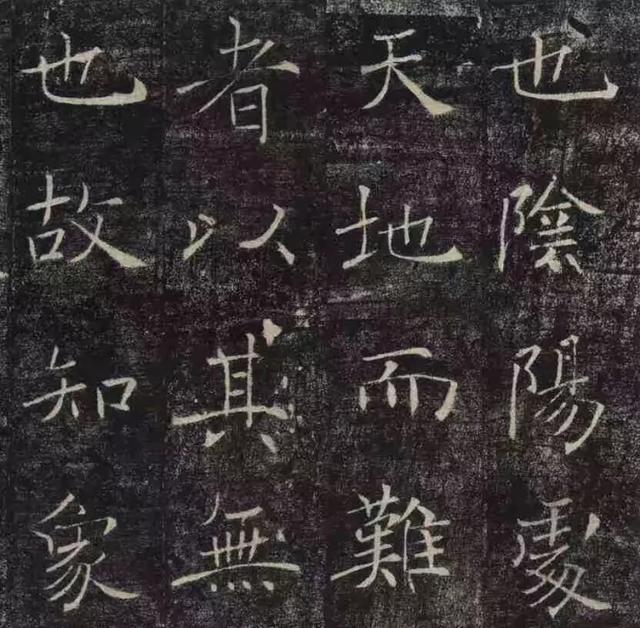 也陰陽處
天地而難
者以其無
也故知象